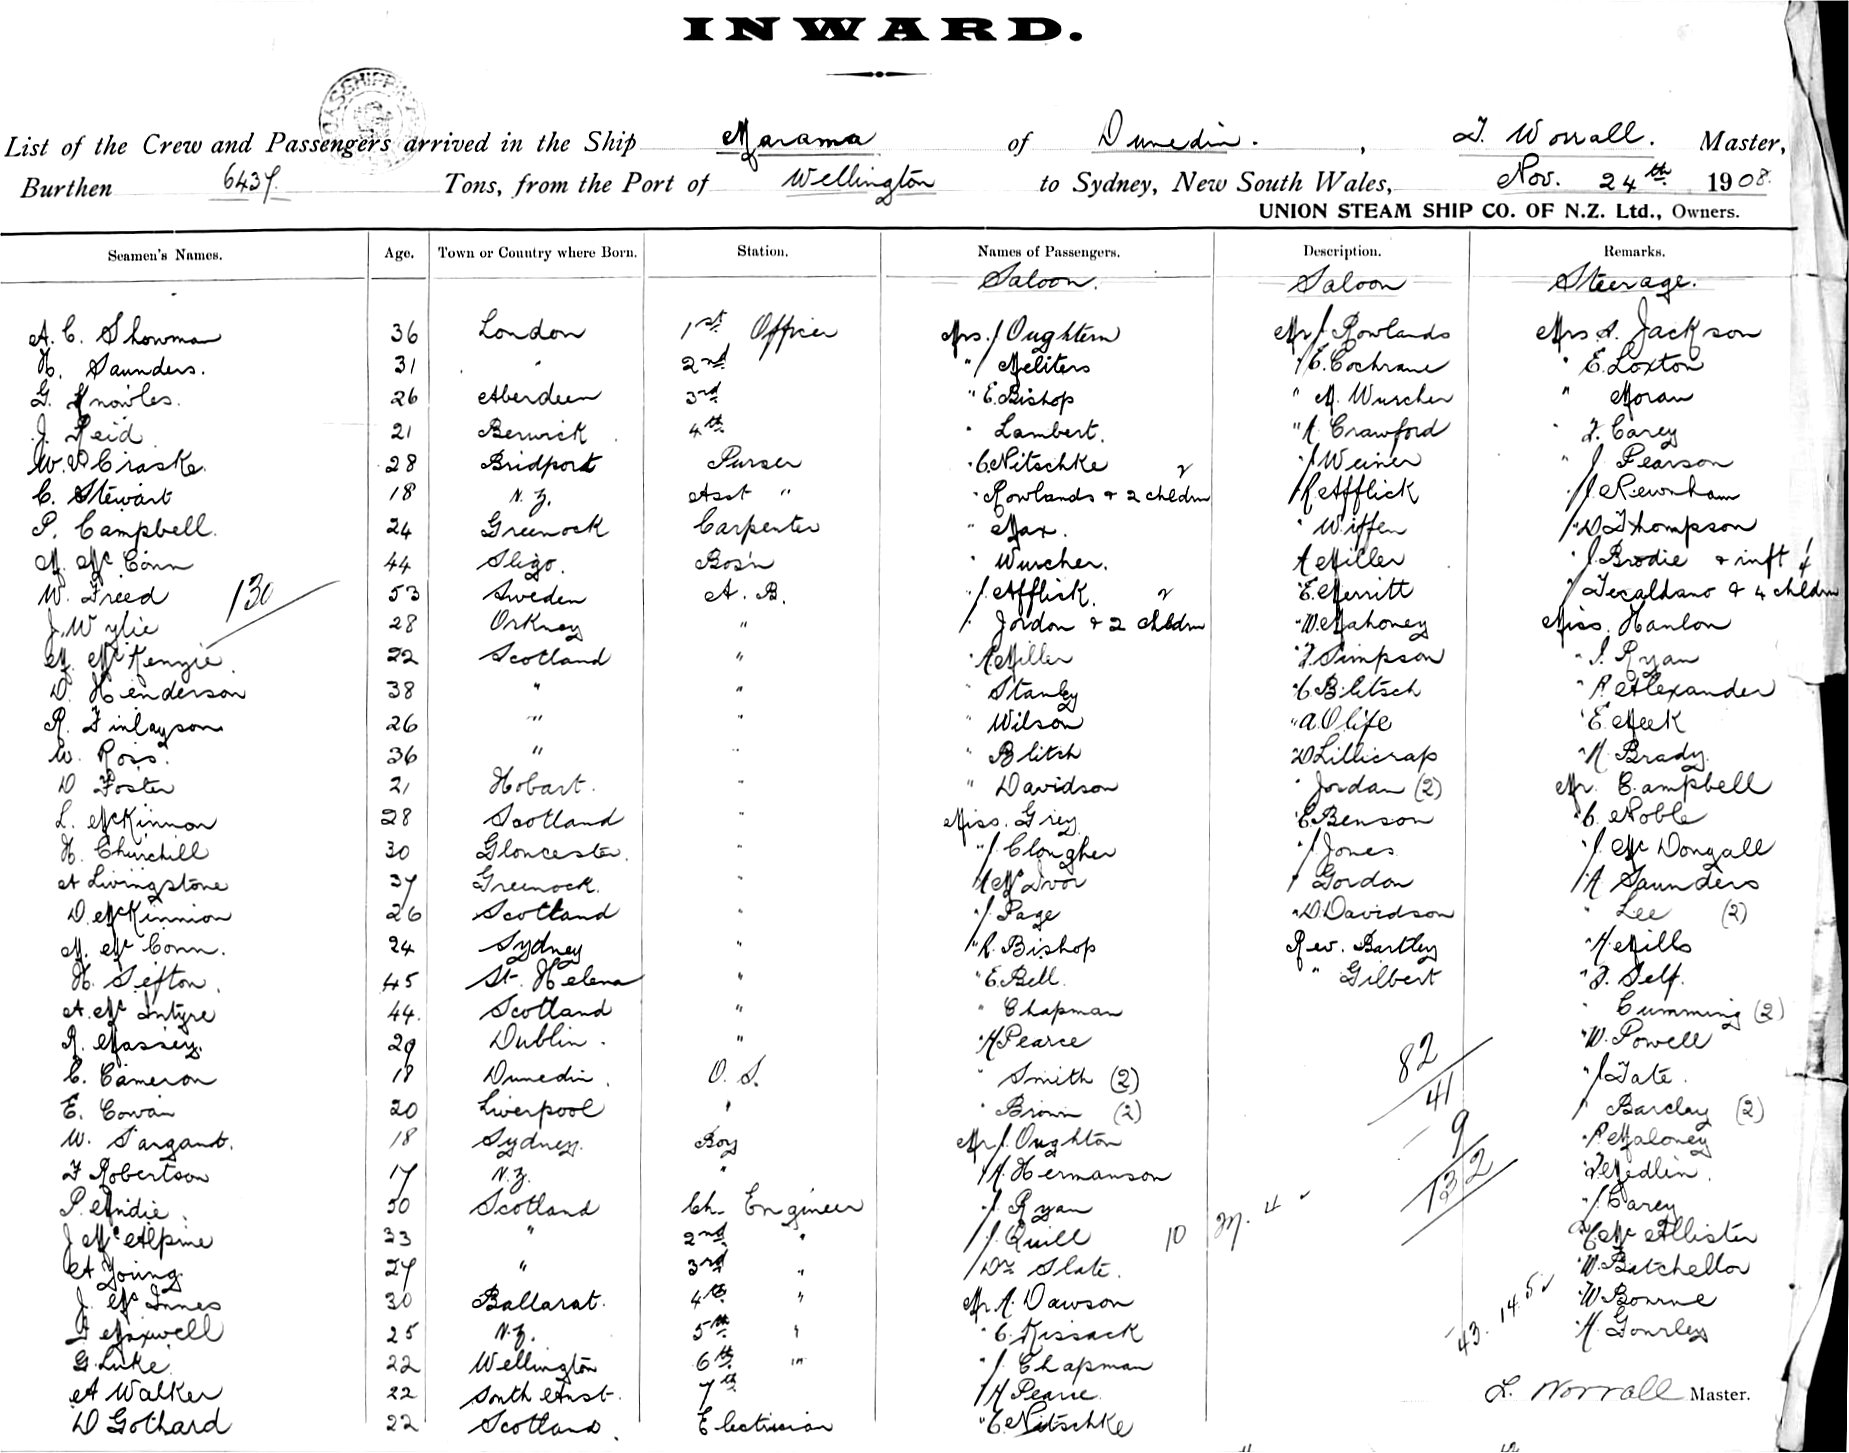 INWARD.
List of the Crew and Passengers arrived in the Ship Marama of Dunedin. , T. Worrall. Master,
Burthen 6437. Tons, from the Port of Wellington to Sydney, New South Wales, Nov. 24th 1908.
UNION STEAM SHIP CO. OF N.Z. Ltd., Owners.
Seamen's Names. Age. Town or Country where Born. Station. Names of Passengers. Description. Remarks.
Saloon. Saloon Steerage.
A. C. Showman 36 London 1st Officer Mrs. J Oughton Mr J Rowlands Mrs. A. Jackson
H. Saunders. 31 " 2nd " Meliters " E. Cochrane " E. Loxton
G. Knowles. 26 Aberdeen 3rd " E. Bishop " M. Wurcher " Moran
J. Reid 21 Berwick 4th " Lambert. " A. Crawford " F. Carey
W. Craske. 28 Bridport Purser " C. Nitschke " J Weiner " J Pearson
C. Stewart 18 N.Z. Asst " " Rowlands & 2 childrn " R Afflick " J. Newnham
P. Campbell. 24 Greenock Carpenter " Max. " Wiffen " D Thompson
M. McConn 44 Sligo. Bos'n " Wurcher. A Miller " J. Brodie & inft
W. Freed 130 53 Sweden A. B. " J. Afflick. " E. Merritt " Tecaldano & 4 childrn
J. Wylie 28 Orkney " " Jordon & 2 childrn " W. Mahoney Miss. Hanlon
M. McKenzie. 22 Scotland " " A Miller " F. Simpson " J. Ryan
D. Henderson 38 " " " Stanley " C. Blitsch " R. Alexander
R. Finlayson 26 " " " Wilson " A. Olife " E. Meek
W. Ross. 36 " " " Blitch " D Lillicrap " N. Brady.
D Foster 21 Hobart. " " Davidson " Jordan (2) Mr. Campbell
L. McKinnon 28 Scotland " Miss. Grey " E Benson " C. Noble
H. Churchill 30 Gloucester. " " J. Clougher " J Jones " J. McDongall
A Livingstone 37 Greenock. " " A McIvor " Gordon " A Saunders
D. McKinnion 26 Scotland " " J. Page " D. Davidson " Lee (2)
M. McConn. 24 Sydney " " R. Bishop Rev. Bartley " H. Mills
H. Sefton. 45 St. Helena " " E. Bell. " Gilbert " F. Self.
A. McIntyre 44. Scotland " " Chapman " Cumming (2)
R. Massey. 29 Dublin. " " H Pearce 82 " W. Powell
C. Cameron 18 Dunedin. O. S. " Smith (2) 41 " J. Tate.
E. Cowan 20 Liverpool " " Brown (2) 9 " Barclay (2)
W. Sargant. 18 Sydney. Boy Mr J. Oughton 132 " P. Maloney
F Robertson 17 N.Z. " " A. Hermanson " T. Medlin.
P. Mindie. 50 Scotland Ch. Engineer " J. Ryan " J. Carey
J McAlpine 33 " 2nd " " J. Quill 10 M. 4 " C. McAllister
A Young 27 " 3rd " " Dr Slate. " W. Batchellor
J. McInnes 30 Ballarat. 4th " Mr A. Dawson 43. 145 " W. Bourne
F Maxwell 25 N.Z. 5th " " C. Kissack " A. Gourley
G. Luke. 22 Wellington 6th " " J. Chapman
A Walker 22 South Aust. 7th " H Pearce. T. Worrall Master.
D Gothard 22 Scotland. Electrician " C. Nitschke